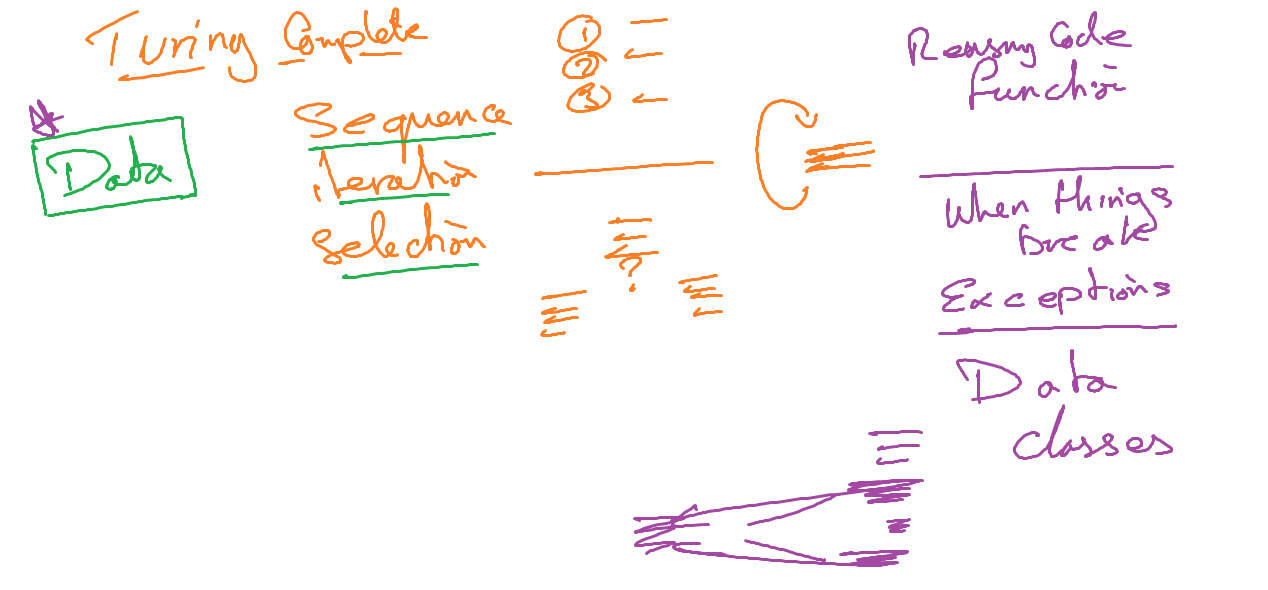 Turing Complete
Data
Sequence
iteration
Selection
1
2
3
?
Reusing Code
function
When things
break
Exceptions
Data
classes